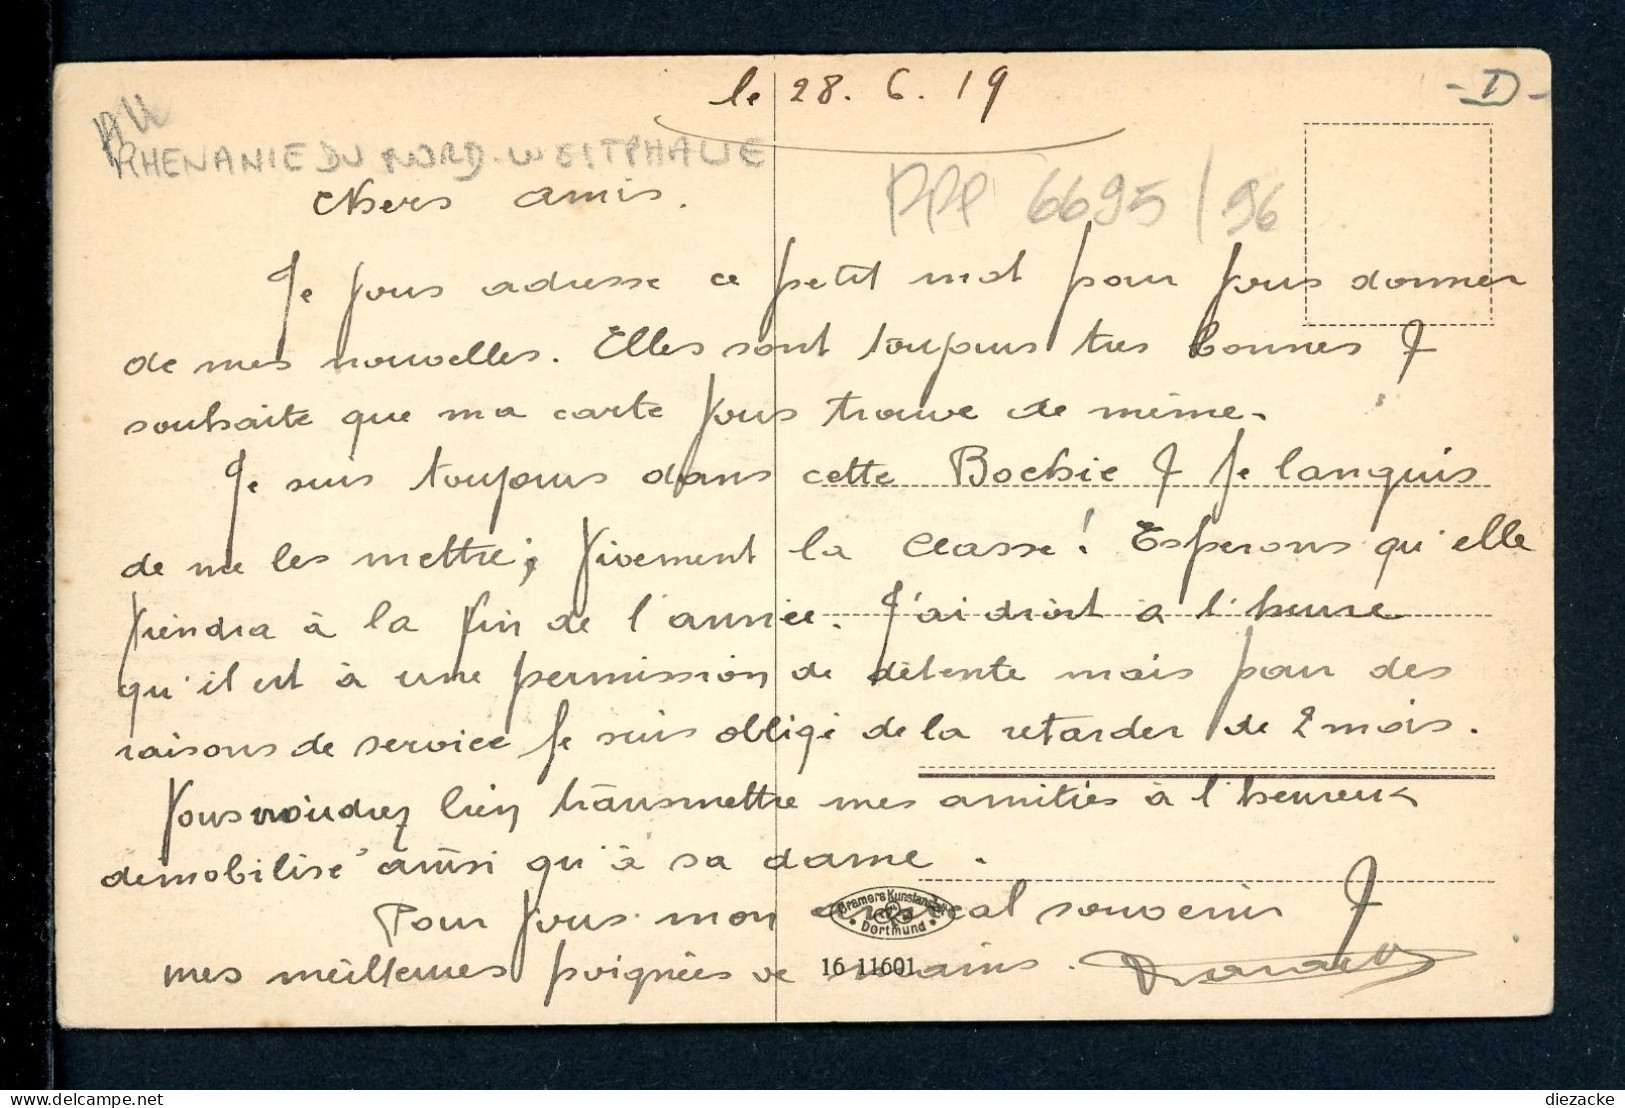 le 28. 6. 19
- D -
RHENANIE DU NORD-WESTPHALIE
6695/96
Chers amis.
Je vous adresse ce petit mot pour vous donner
de mes nouvelles. Elles sont toujours très bonnes &
souhaite que ma carte vous trouve de même.
Je suis toujours dans cette Bochie & je languis
de me les mettre; vivement la classe! Esperons qu'elle
viendra à la fin de l'année. J'ai droit à l'heure
qu'il est à une permission de détente mais pour des
raisons de service je suis obligé de la retarder de 2 mois.
Vous voudrez bien transmettre mes amitiés à l'heureux
démobilisé ainsi qu'à sa dame.
Pour vous mon amical souvenir &
mes meilleures poignées de mains.
Cramers Kunstanstalt
Dortmund
16 11601
delcampe.net
diezacke